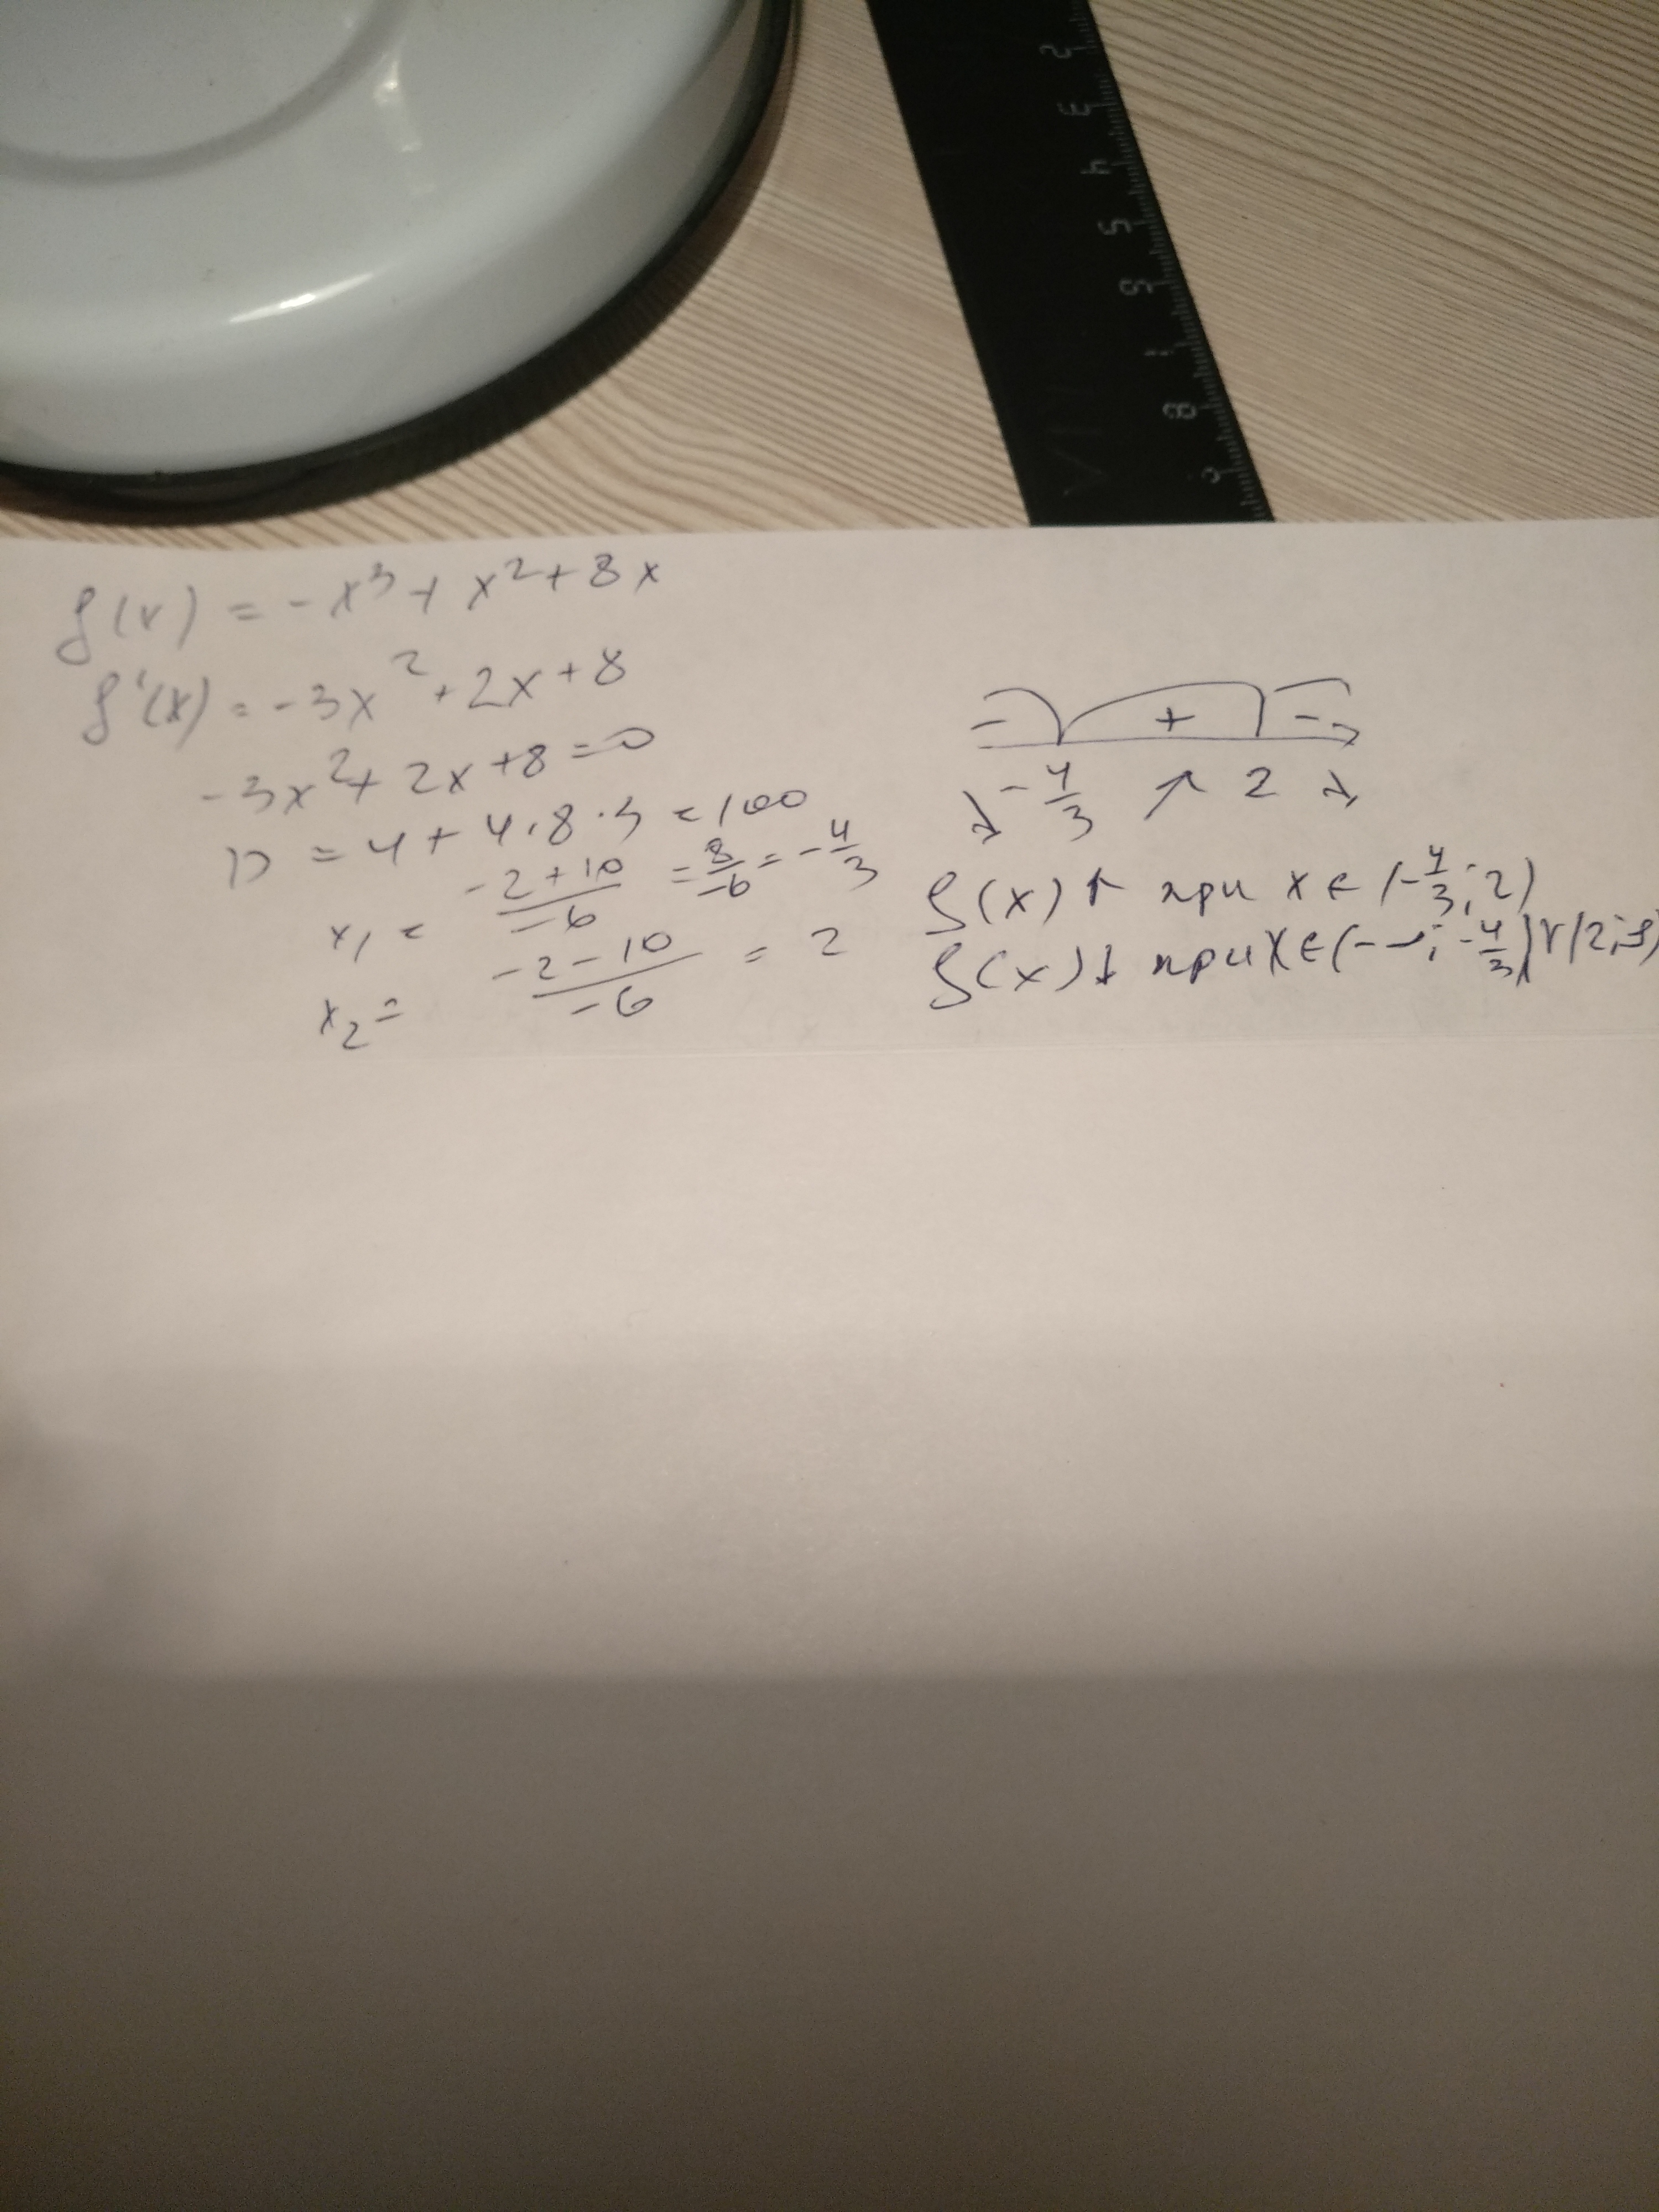 2 3 4 5 6 7 8 9
f(x) = -x³ + x² + 8x
f'(x) = -3x² + 2x + 8
-3x² + 2x + 8 = 0
D = 4 + 4·8·3 = 100
x₁ = (-2+10)/(-6) = 8/(-6) = -4/3
x₂ = (-2-10)/(-6) = 2
- + -
↘ -4/3 ↗ 2 ↘
f(x)↑ при x ∈ (-4/3; 2)
f(x)↓ при x ∈ (-∞; -4/3) ∪ (2; ∞)